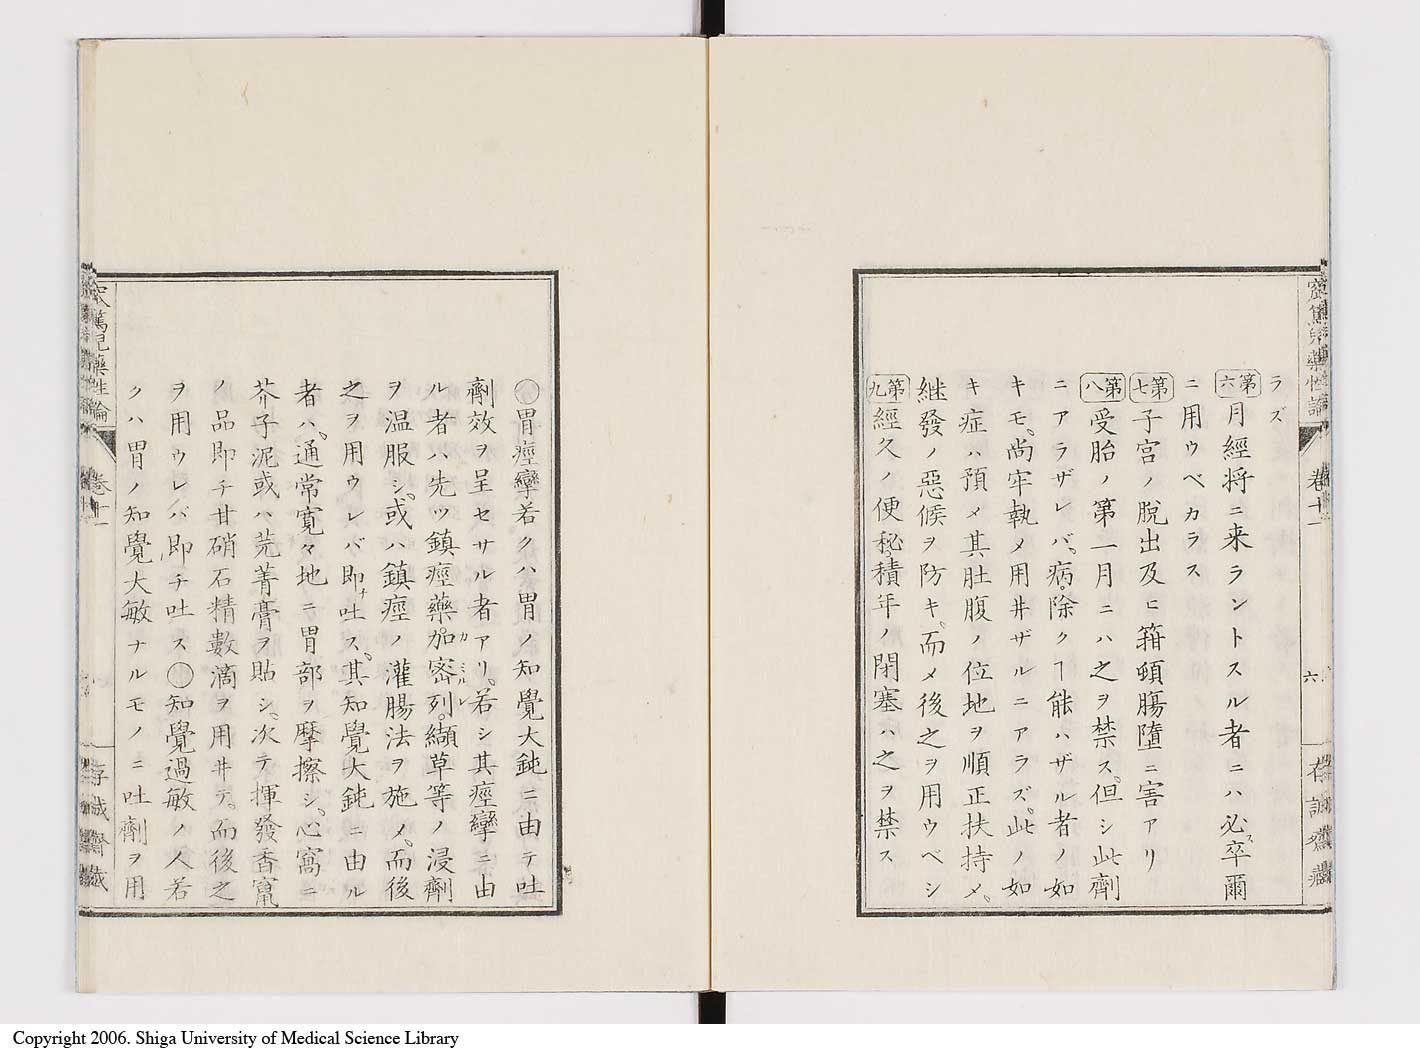 窊篤児藥性論
卷十一
六
存誠齋藏
ラズ
第六 月經将ニ来ラントスル者ニハ必ス卒爾
ニ用ウベカラス
第七 子宮ノ脱出及ヒ籍頓膓墮ニ害アリ
第八 受胎ノ第一月ニハ之ヲ禁ス。但シ此劑
ニアラザレバ。病除クヿ能ハザル者ノ如
キモ。尚牢執メ用井ザルニアラズ。此ノ如
キ症ハ預メ其肚腹ノ位地ヲ順正扶持メ。
継發ノ惡候ヲ防キ。而メ後之ヲ用ウベシ
第九 經久ノ便秘。積年ノ閉塞ハ之ヲ禁ス
○胃痙攣若クハ胃ノ知覺大鈍ニ由テ吐
劑效ヲ呈セサル者アリ。若シ其痙攣ニ由
ル者ハ先ツ鎮痙藥加密列カミルレ。纈草等ノ浸劑
ヲ温服シ。或ハ鎮痙ノ灌腸法ヲ施メ。而後
之ヲ用ウレバ即チ吐ス。其知覺大鈍ニ由ル
者ハ。通常寛々地ニ胃部ヲ摩擦シ。心窩ニ
芥子泥或ハ芫菁膏ヲ貼シ。次テ揮發香竄
ノ品即チ甘硝石精數滴ヲ用井テ。而後之
ヲ用ウレバ即チ吐ス○知覺過敏ノ人若
クハ胃ノ知覺大敏ナルモノニ吐劑ヲ用
窊篤児藥性論
卷十一
存誠齋藏
Copyright 2006. Shiga University of Medical Science Library